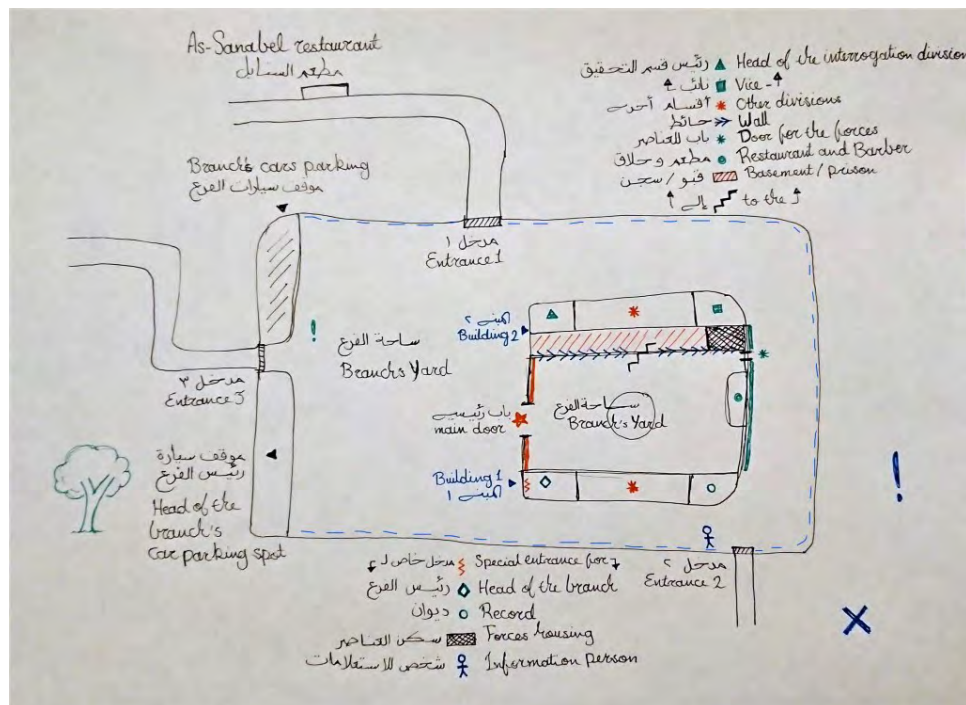 As-Sanabel restaurant
مطعم السنابل
رئيس قسم التحقيق Head of the interrogation division
نائب Vice -
أقسام أخرى Other divisions
حائط Wall
باب للعناصر Door for the forces
مطعم وحلاق Restaurant and Barber
قبو / سجن Basement / prison
إلى to the
Branch's cars parking
موقف سيارات الفرع
مدخل ١
Entrance 1
المبنى ٢
Building 2
!
ساحة الفرع
Branch's Yard
مدخل ٣
Entrance 3
باب رئيسي
main door
ساحة الفرع
Branch's Yard
موقف سيارة
رئيس الفرع
Head of the
branch's
Car parking spot
Building 1
المبنى ١
!
مدخل ٢
Entrance 2
مدخل خاص لـ Special entrance for
رئيس الفرع Head of the branch
ديوان Record
سكن العناصر Forces housing
شخص للاستعلامات Information person
X